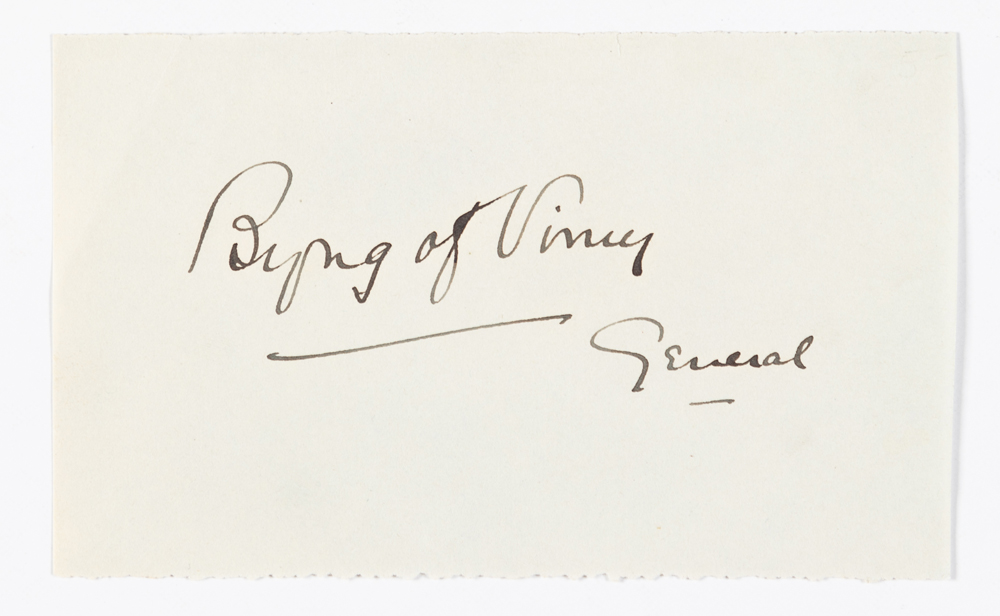 Byng of Vimy
General